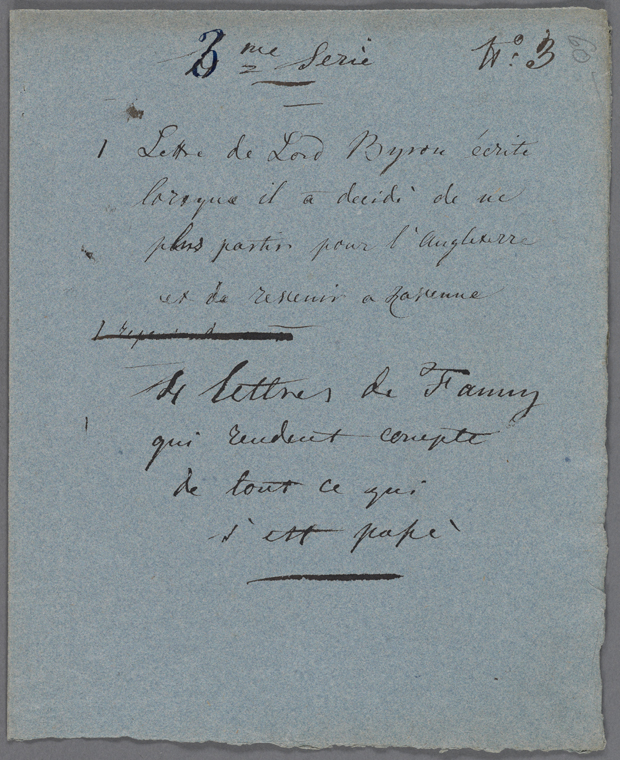 3me Serie N°: 3
60
1 Lettre de Lord Byron écrite
lorsque il a decidé de ne
plus partir pour l'Angleterre
et de revenir a Ravenne
1
4 lettres de Fanny
1 qui rendent compte
de tout ce qui
s'est passé